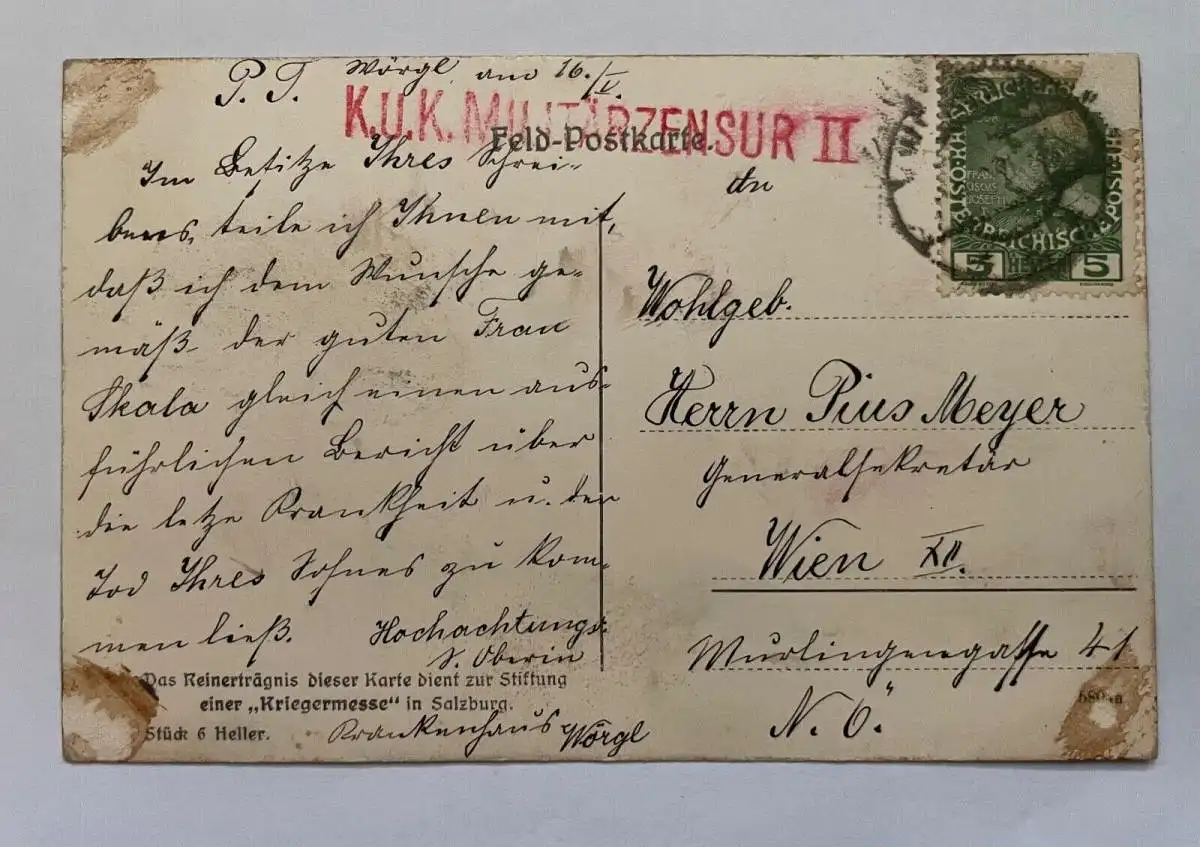 P. T. Wörgl, am 16./V.
K.U.K. MILITÄRZENSUR II
Feld-Postkarte.
Im Besitze Ihres Schrei-
bens, teile ich Ihnen mit,
daß ich dem Wunsche ge-
mäß der guten Frau
Skala gleich einen aus-
führlichen Bericht über
die letze Krankheit u. den
Tod Ihres Sohnes zu kom-
men ließ. Hochachtungs.
S. Oberin
Krankenhaus Wörgl
Das Reinerträgnis dieser Karte dient zur Stiftung
einer „Kriegermesse" in Salzburg.
Stück 6 Heller.
An
Wohlgeb.
Herrn Pius Meyer
Generalsekretär
Wien XII.
Wurlingergasse 41
N. Ö.
FRAN
CISCUS
JOSEPH I
5 HELLER 5